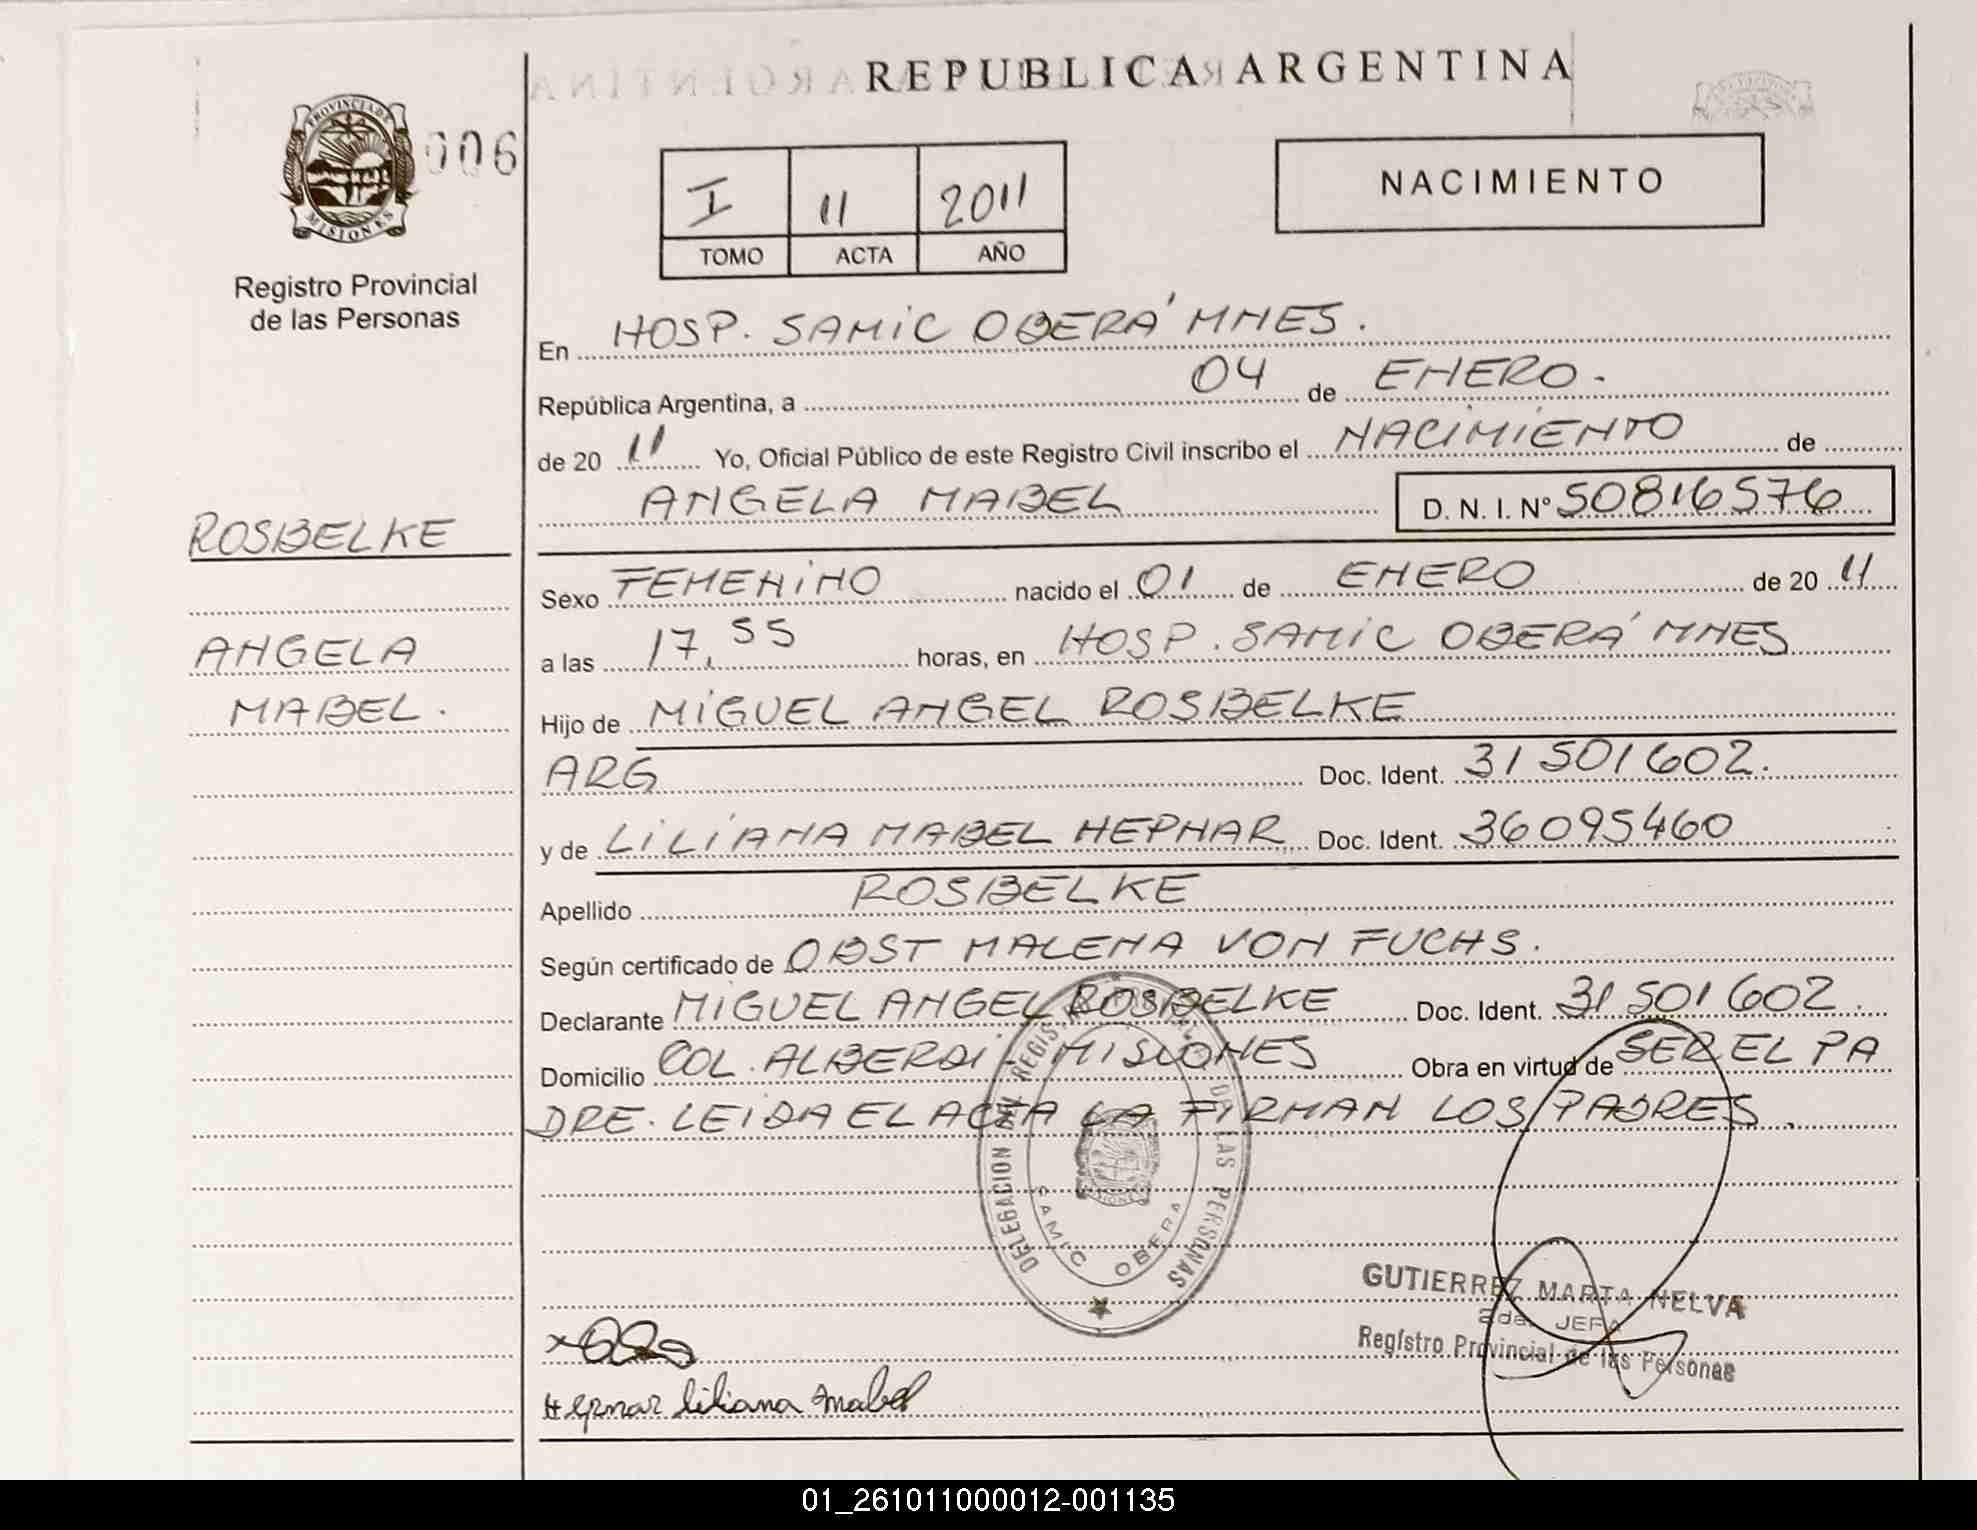 REPUBLICA ARGENTINA
PROVINCIA DE MISIONES
006
Registro Provincial
de las Personas
I 11 2011
TOMO ACTA AÑO
NACIMIENTO
En HOSP. SAMIC OBERÁ MNES.
República Argentina, a 04 de ENERO.-
de 20 11 Yo, Oficial Público de este Registro Civil inscribo el NACIMIENTO de
ANGELA MABEL D. N. I. Nº 50816576
ROSBELKE
ANGELA
MABEL.
Sexo FEMENINO nacido el 01 de ENERO de 20 11
a las 17,55 horas, en HOSP. SAMIC OBERÁ MNES
Hijo de MIGUEL ANGEL ROSBELKE
ARG Doc. Ident. 31501602.
y de LILIANA MABEL HEPNAR Doc. Ident. 36095460
Apellido ROSBELKE
Según certificado de OBST MALENA VON FUCHS.
Declarante MIGUEL ANGEL ROSBELKE Doc. Ident. 31501602.
Domicilio COL. ALBERDI - MISIONES Obra en virtud de SER EL PA
DRE. LEIDA EL ACTA LA FIRMAN LOS PADRES.
DELEGACION DEL REGISTRO DE LAS PERSONAS
SAMIC OBERA
GUTIERREZ MARTA NELVA
2da. JEFA
Registro Provincial de las Personas
Hepnar Liliana Mabel
01_261011000012-001135